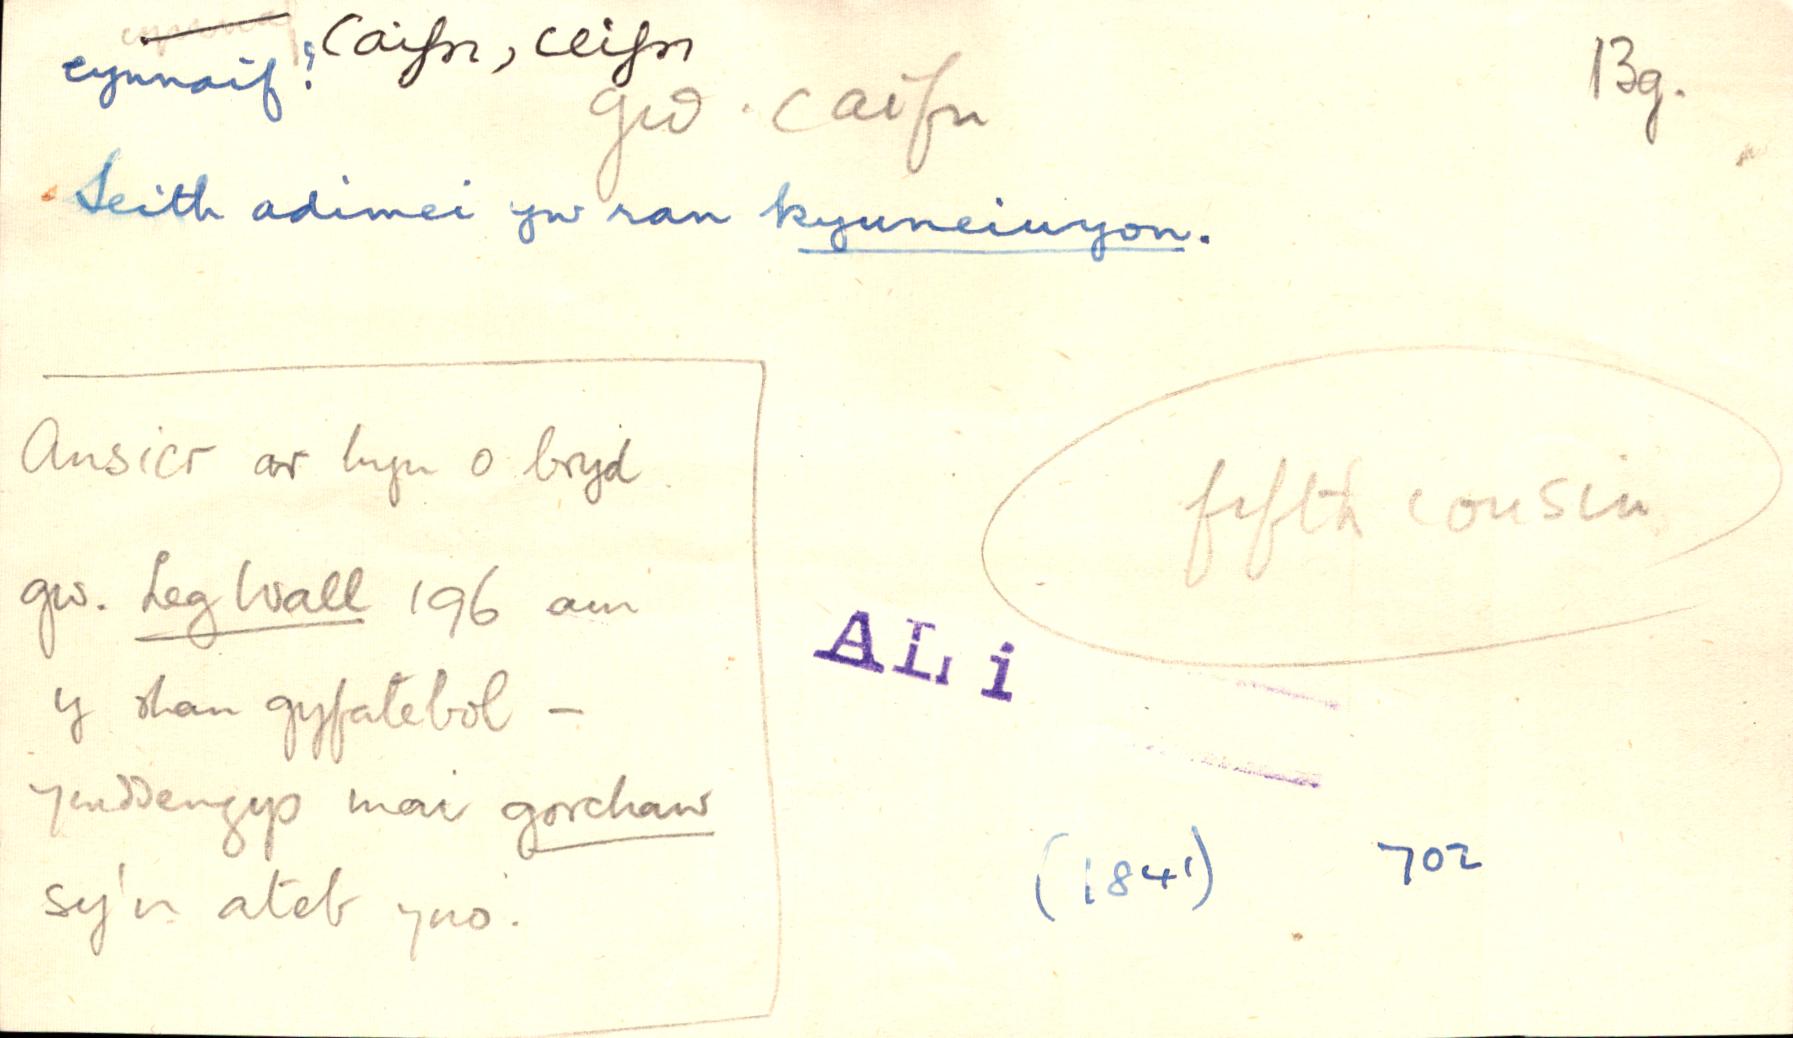 cynnaif? caifn, ceifn
13g.
gw. caifn
Seith adimei yw ran kyuneiuyon.
Ansicr ar hyn o bryd
gw. Leg Wall 196 am
y rhan gyfatebol –
ymddengys mai gorchaw
sy'n ateb yno.
fifth cousin
ALi
(1841) 702